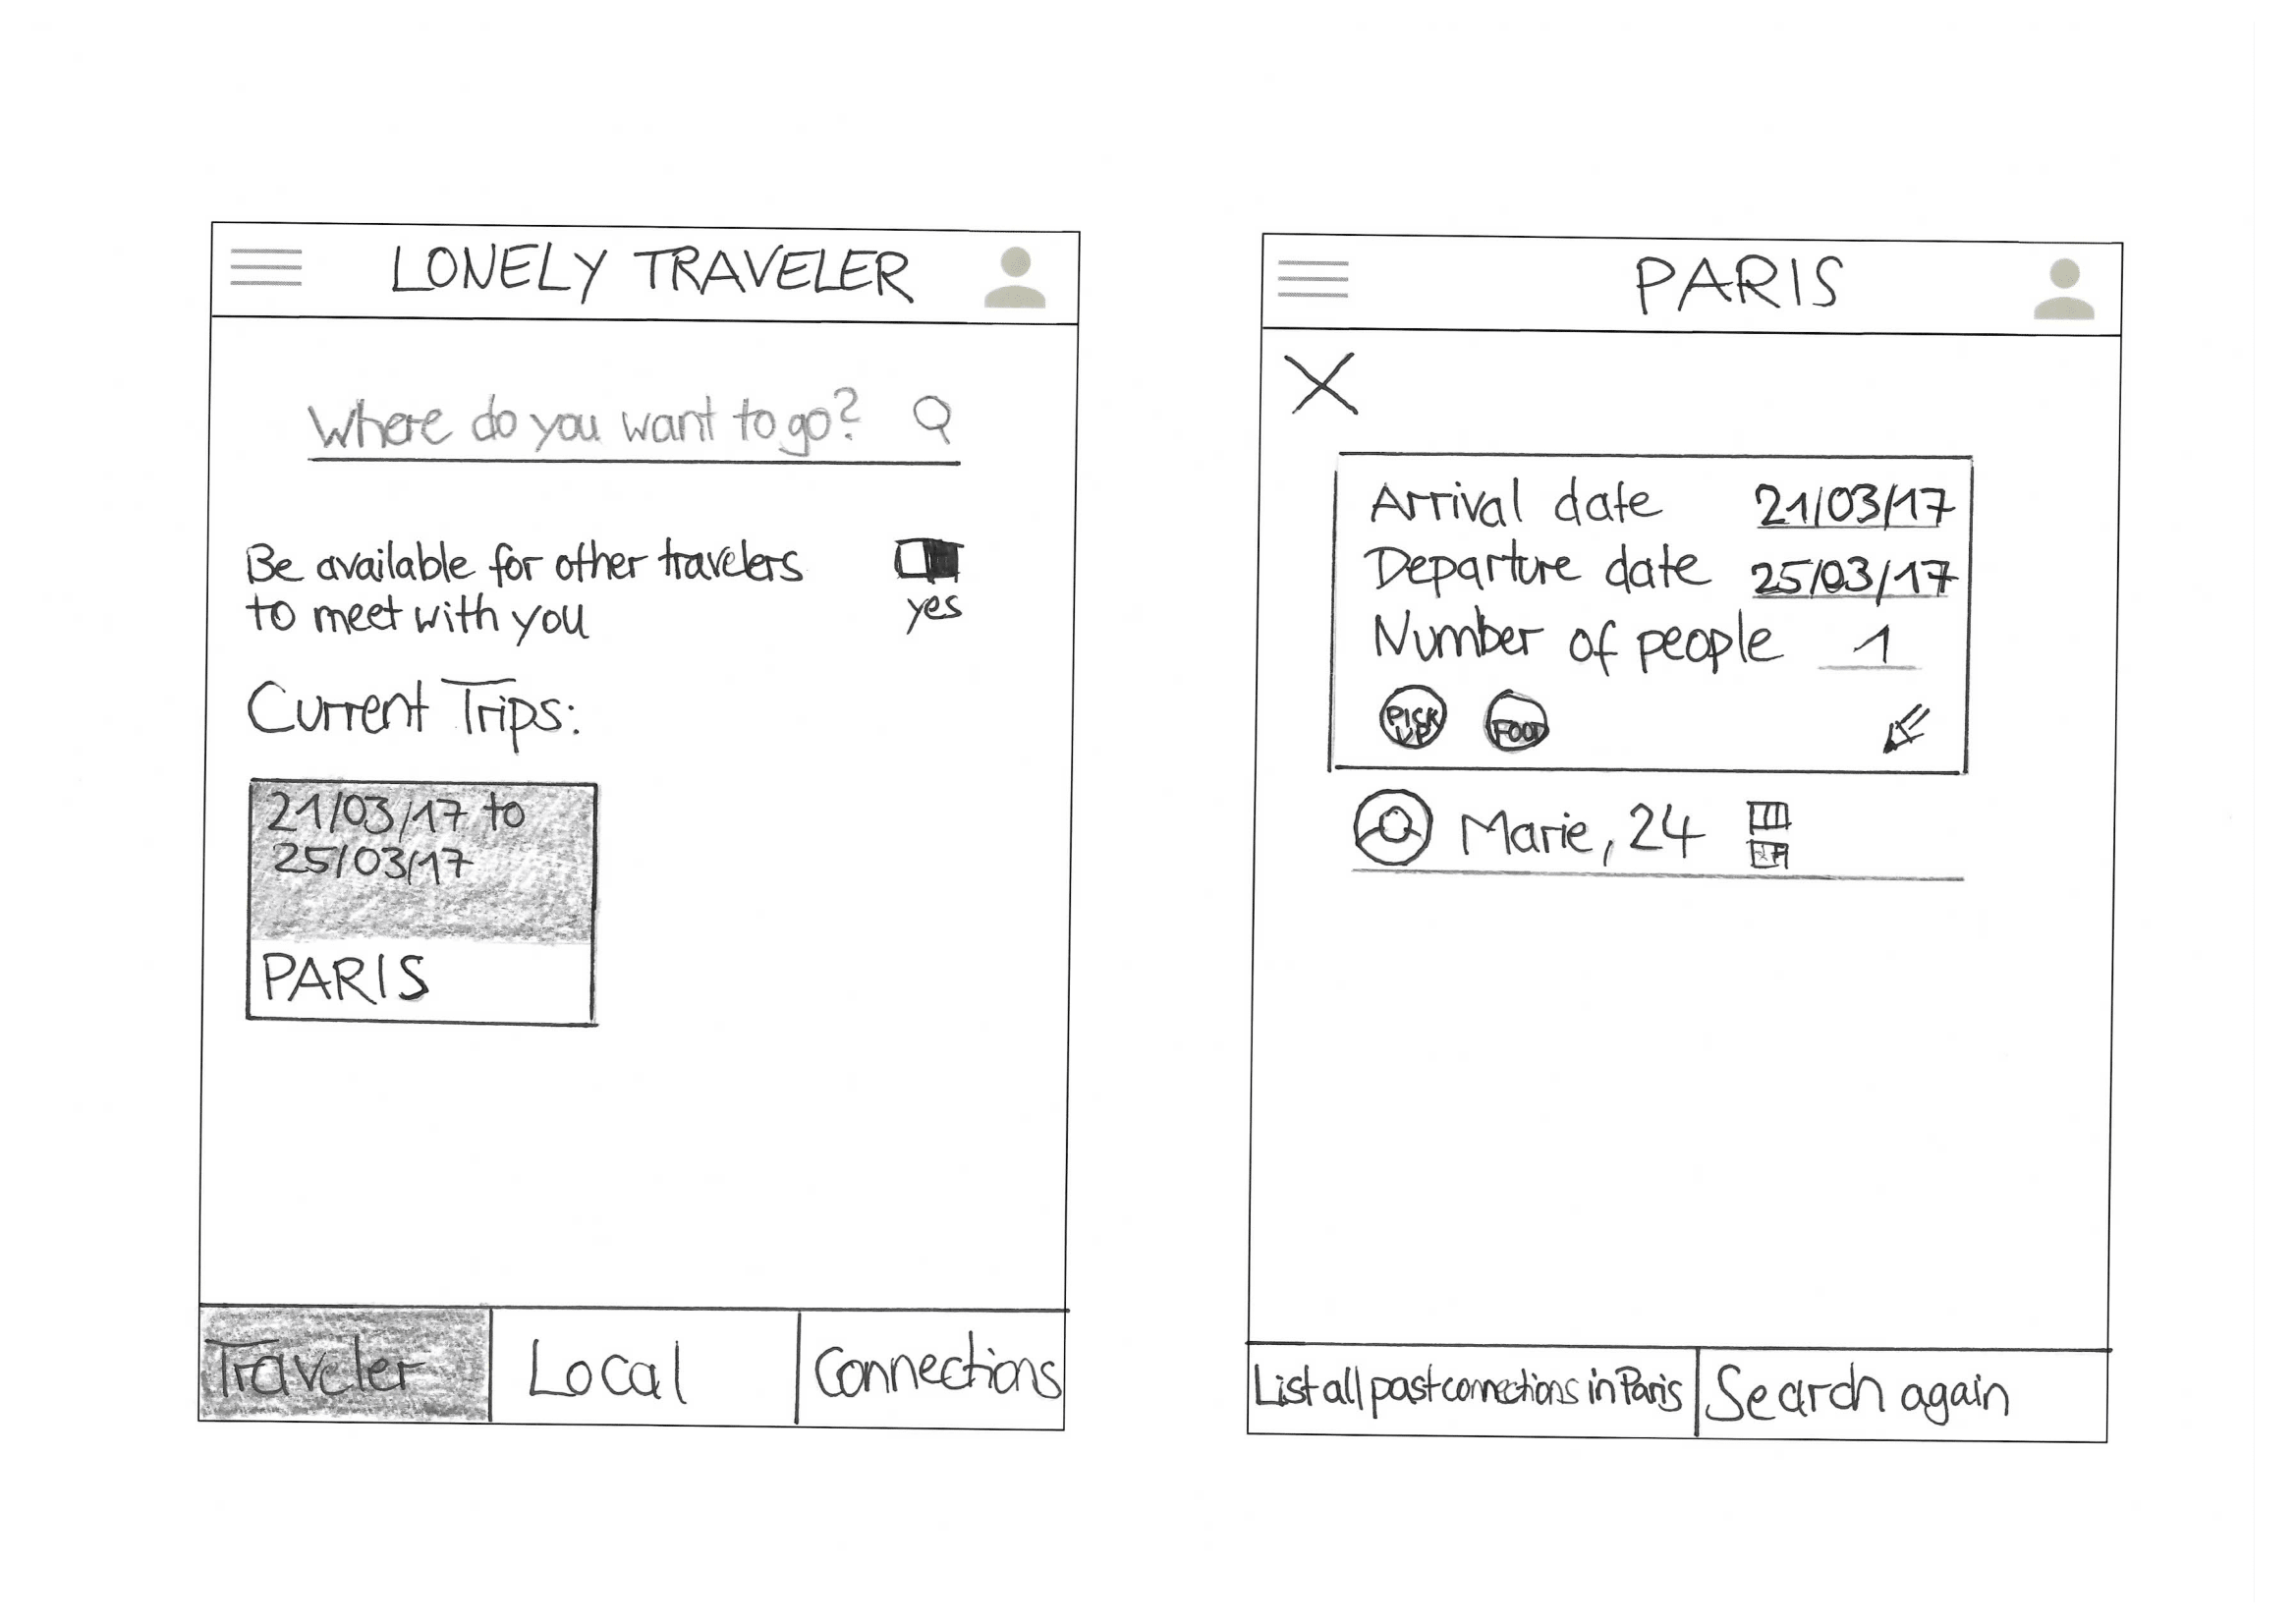 LONELY TRAVELER
Where do you want to go?
Be available for other travelers
to meet with you
yes
Current Trips:
21/03/17 to
25/03/17
PARIS
Traveler
Local
Connections
PARIS
Arrival date 21/03/17
Departure date 25/03/17
Number of people 1
PICK
UP
FOOD
Marie, 24
List all past connections in Paris
Search again